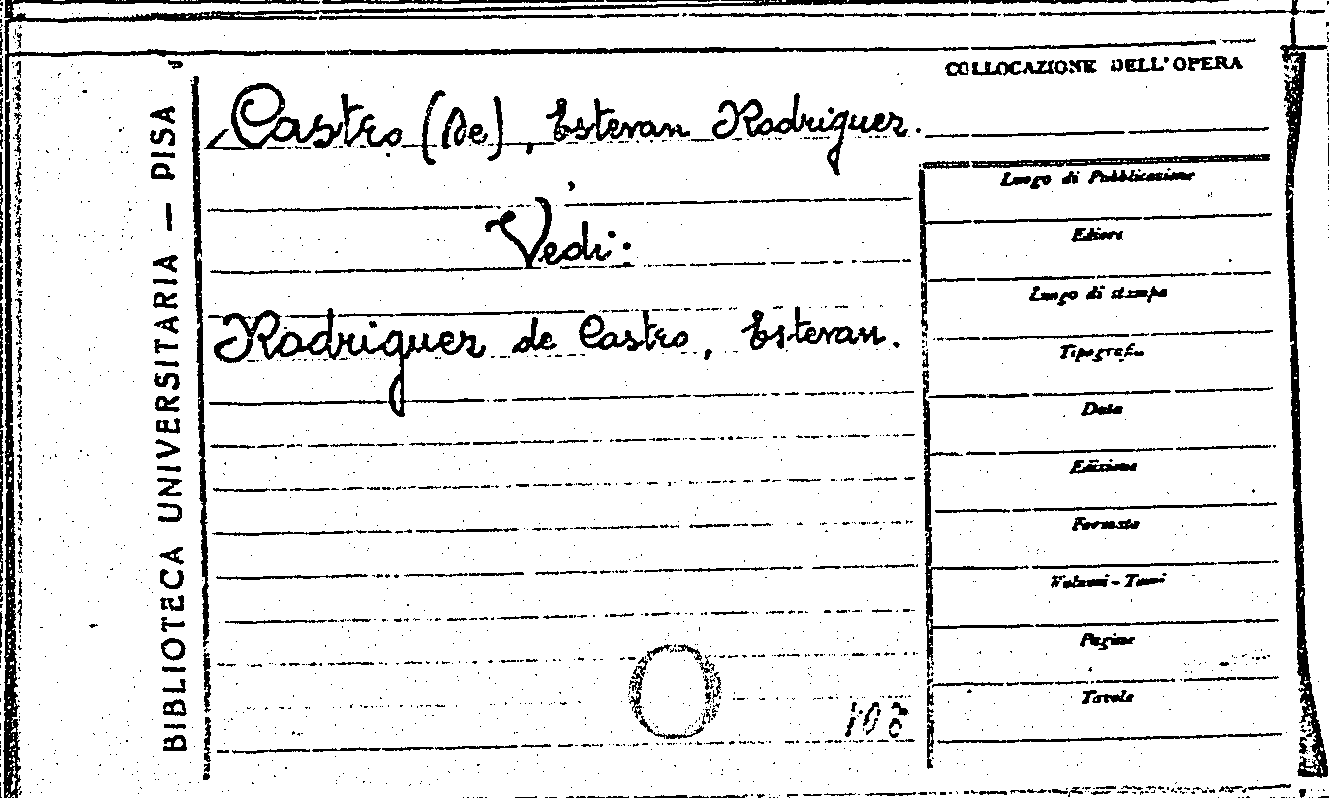 BIBLIOTECA UNIVERSITARIA — PISA
COLLOCAZIONE DELL'OPERA
Castro (de), Estevan Rodriguez.
Vedi:
Rodriguez de Castro, Estevan.
Luogo di Pubblicazione
Editore
Luogo di stampa
Tipografia
Data
Edizione
Formato
Volumi - Tomi
Pagine
Tavole